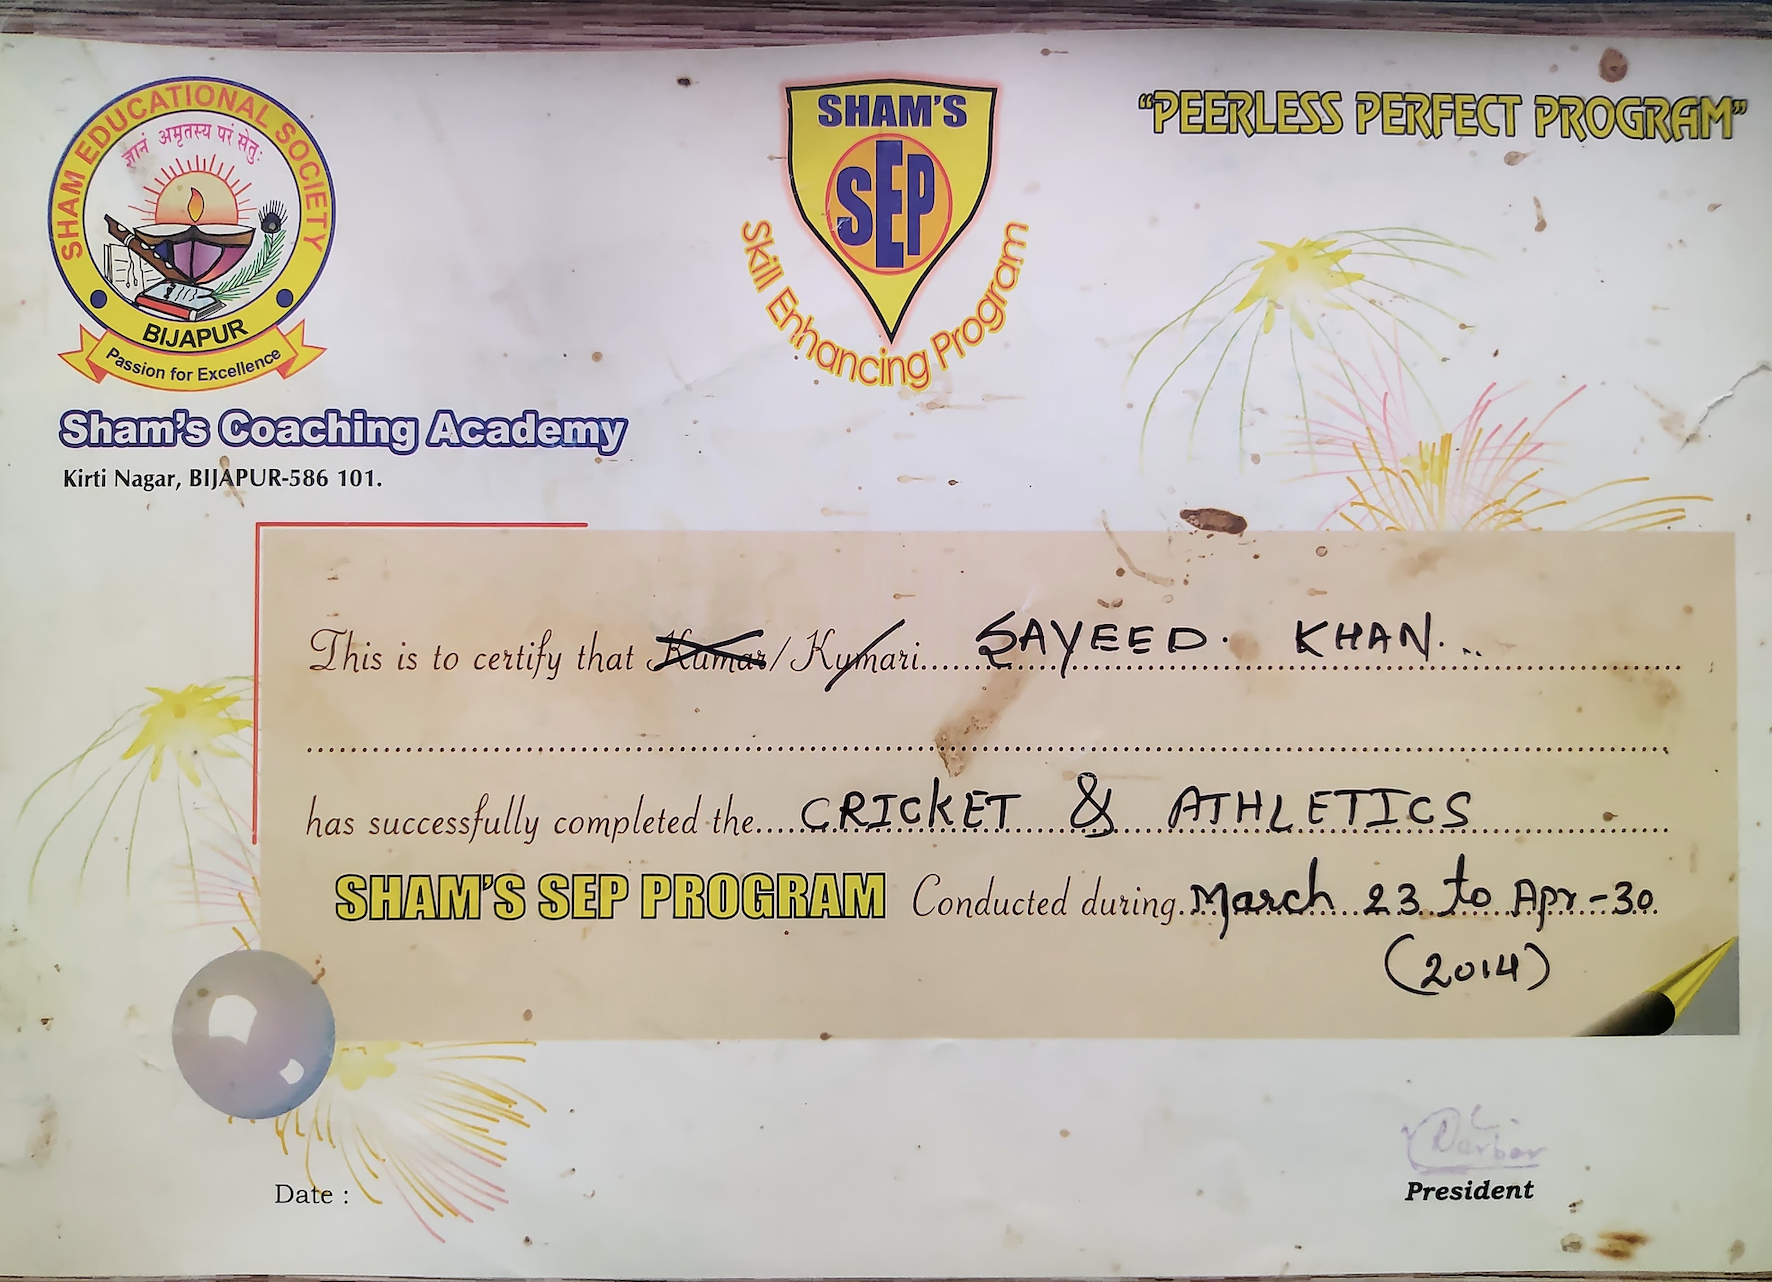 SHAM EDUCATIONAL SOCIETY
ज्ञानं अमृतस्य परं सेतुः
BIJAPUR
Passion for Excellence
Sham's Coaching Academy
Kirti Nagar, BIJAPUR-586 101.
SHAM'S
SEP
Skill Enhancing Program
"PEERLESS PERFECT PROGRAM"
This is to certify that Kumar/Kumari SAYEED. KHAN.
has successfully completed the CRICKET & ATHLETICS
SHAM'S SEP PROGRAM Conducted during March 23 to Apr-30
(2014)
Date :
Darbar
President